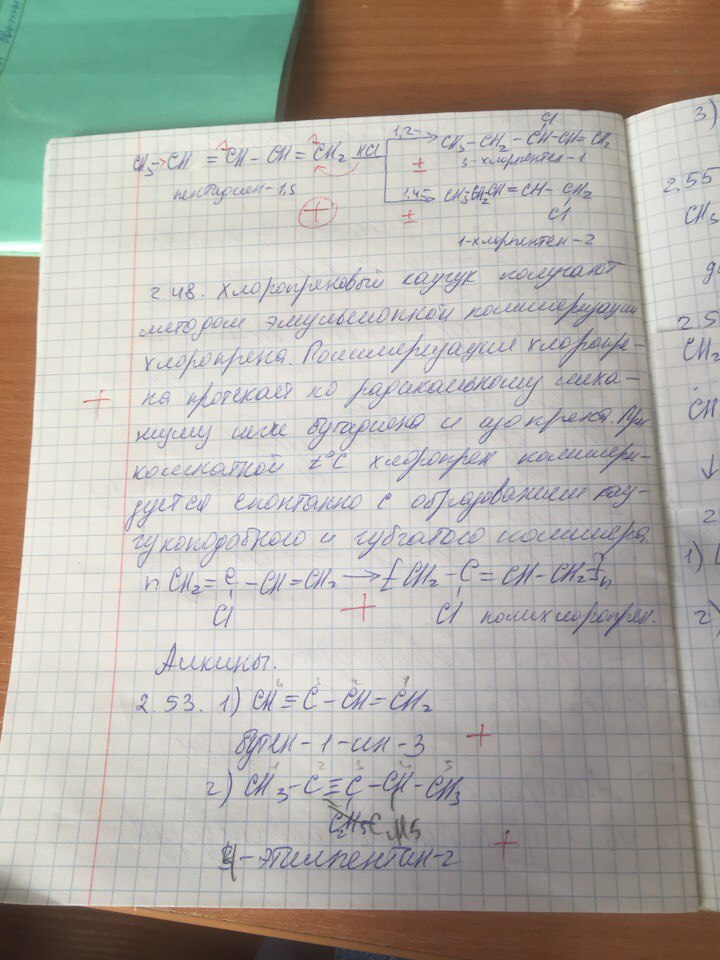 Cl
CH₃→CH=CH-CH=CH₂ HCl 1,2- CH₃-CH₂-CH-CH=CH₂
± 3-хлорпентен-1
пентадиен-1,3 1,4- CH₃CH₂CH=CH-CH₂
+ ± Cl
1-хлорпентен-2
2.48. Хлоропреновый каучук получают
методом эмульсионной полимеризации
хлоропрена. Полимеризация хлоропре-
+ на протекает по радикальному меха-
низму иже бутадиена и изопрена. При
комнатной t°C хлоропрен полимери-
зуется спонтанно с образованием кау-
чукоподобного и губчатого полимера.
n CH₂=C-CH=CH₂→[CH₂-C=CH-CH₂]n
Cl + Cl полихлоропрен.
Алкины.
4 3 2 1
2.53. 1) CH≡C-CH=CH₂
бутен-1-ин-3 +
1 2 3 4 5
2) CH₃-C≡C-CH-CH₃
C₂H₅ C₂H₅
4-этилпентин-2 +
3)
2.55
CH₃
2.5
CH₂
CH
↓
2
1)
2)